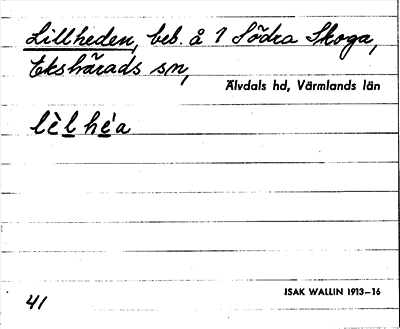 Lillheden, beb. å 1 Södra Skoga,
Ekshärads sn,
Älvdals hd, Värmlands län
lèl héa
ISAK WALLIN 1913–16
41